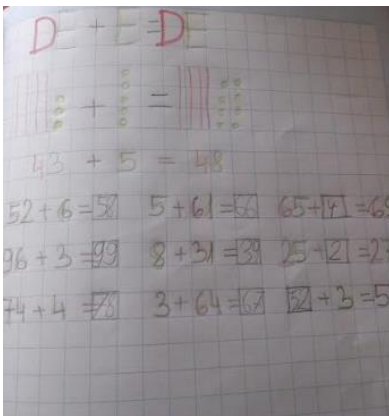 DE + E = DE
+ =
43 + 5 = 48
52 + 6 = 58 5 + 61 = 66 65 + 4 = 69
96 + 3 = 99 8 + 31 = 39 25 - 2 = 2
74 + 4 = 78 3 + 64 = 67 52 + 3 = 5